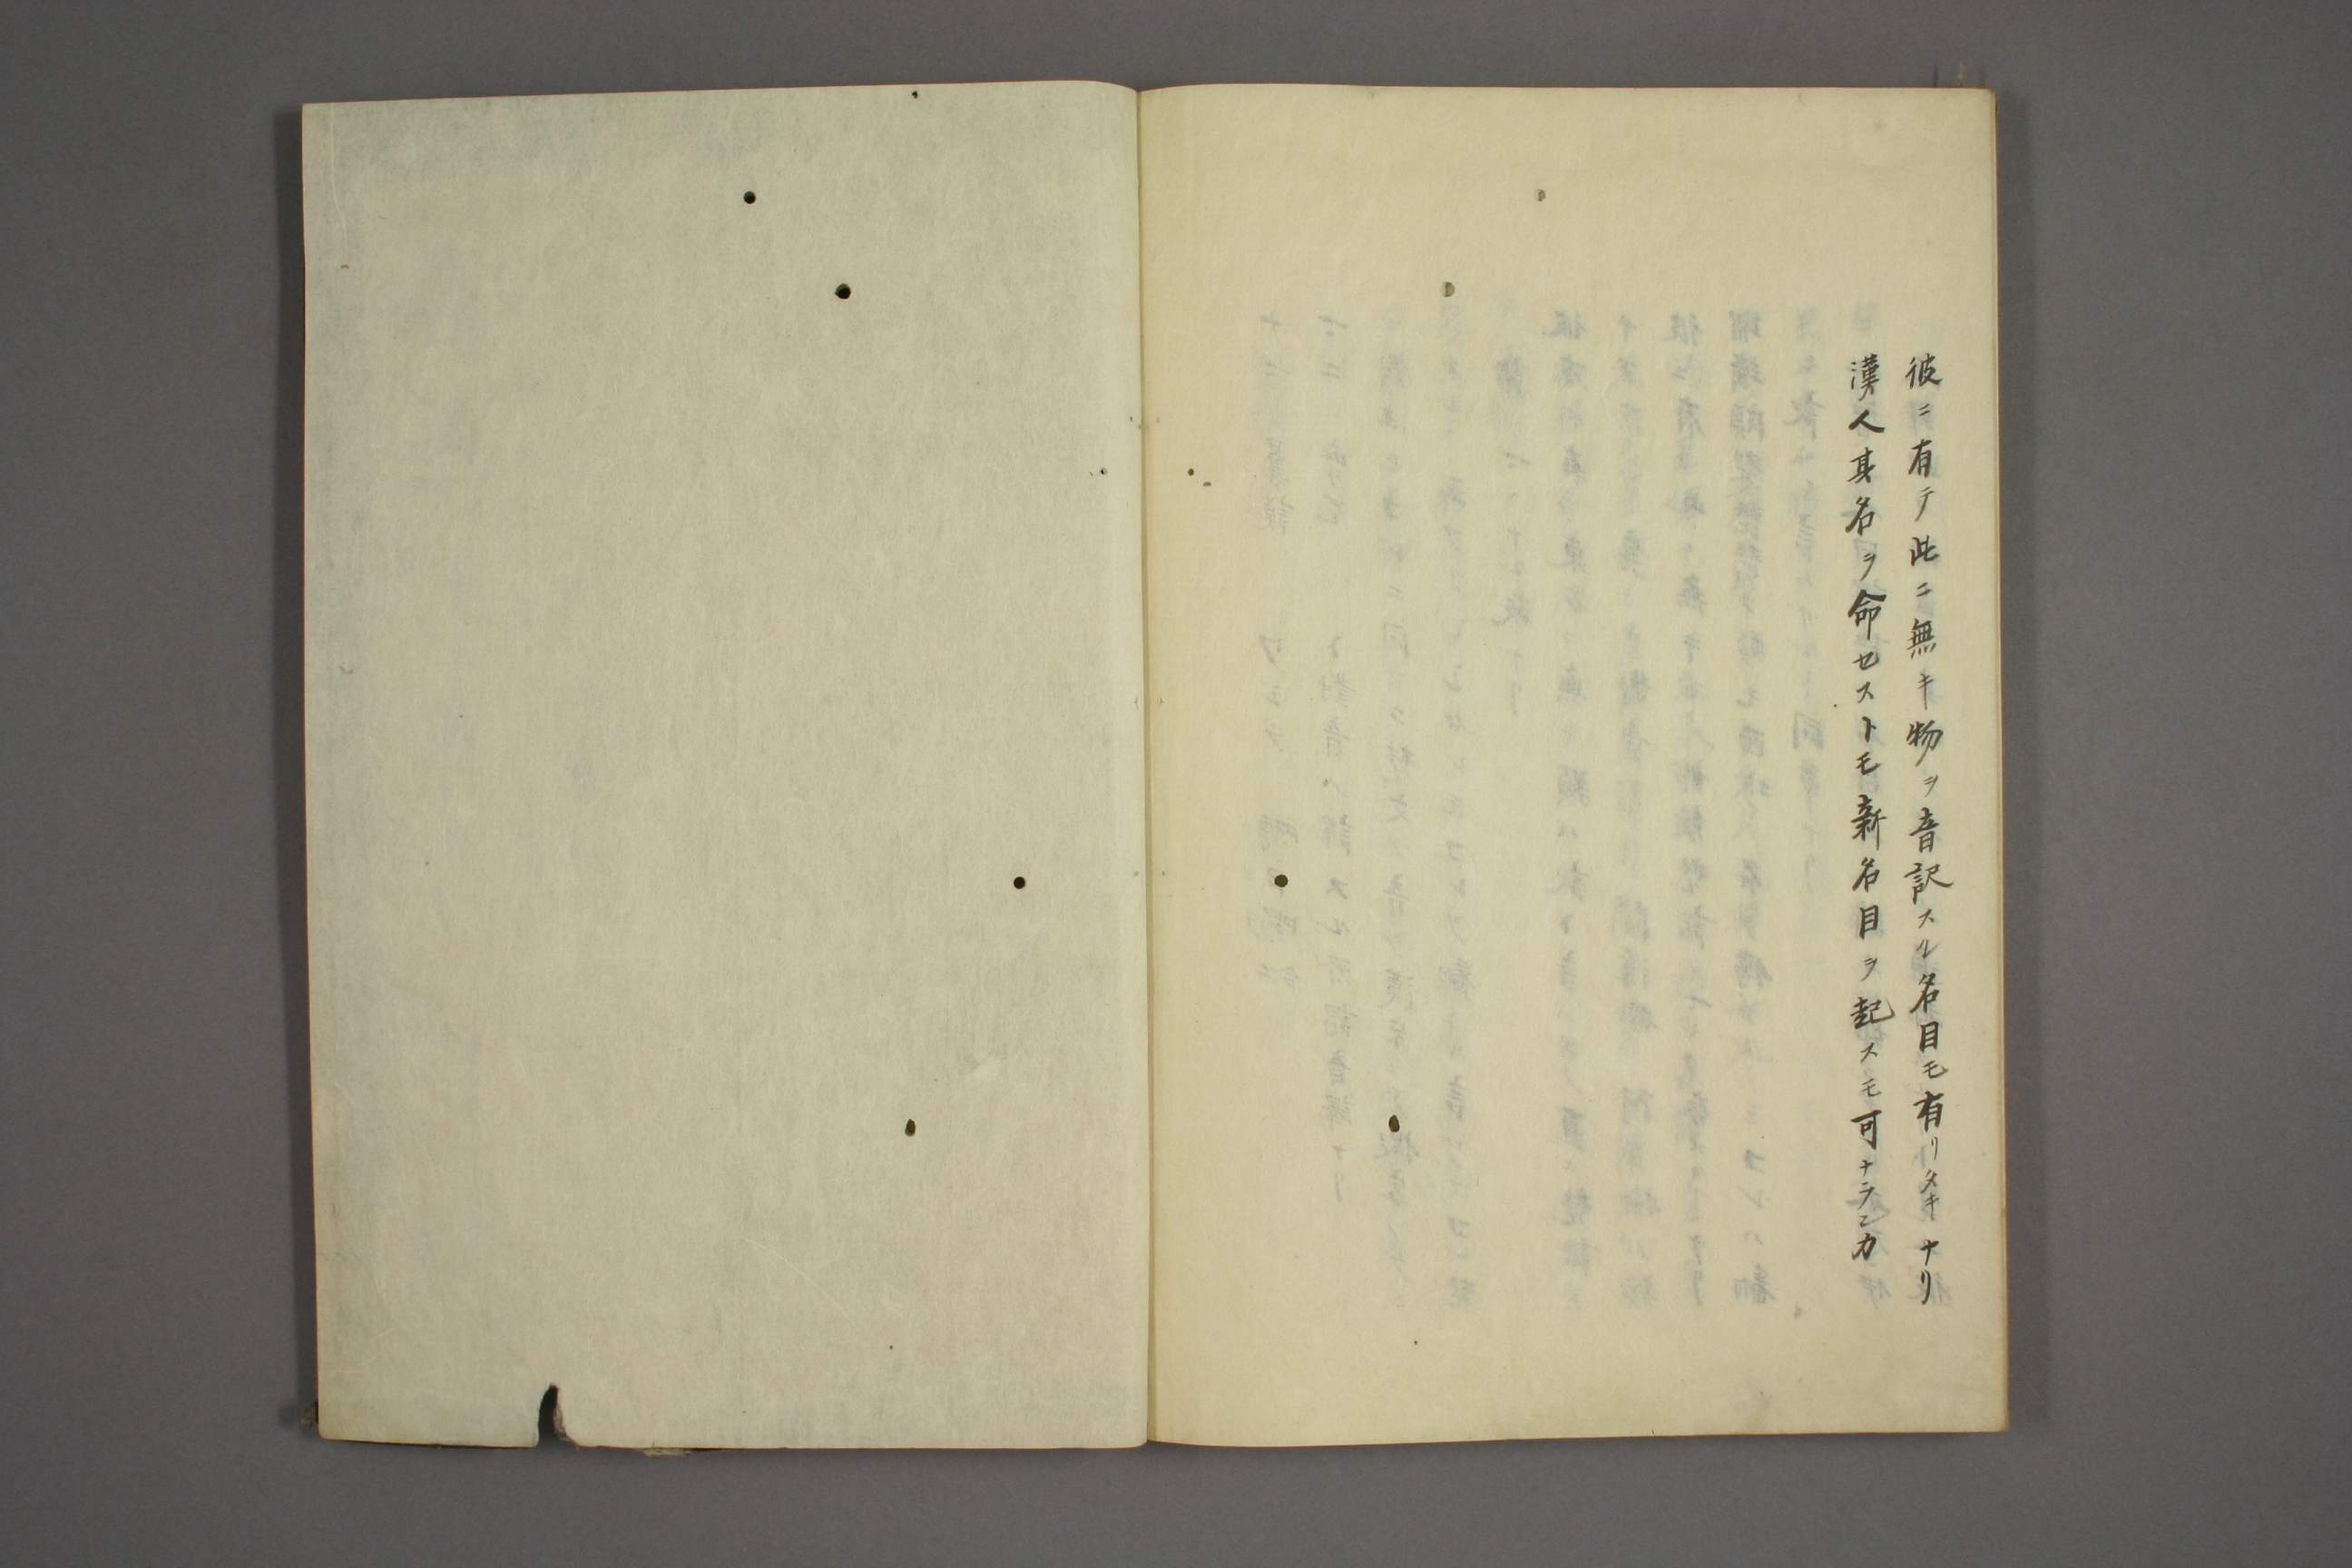 彼ニ有テ此ニ無キ物ヲ音訳スル名目モ有リタキナリ
漢人其名ヲ命セストモ新名目ヲ起スモ可ナランカ